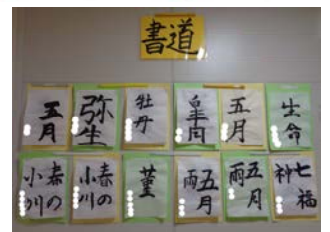 書道
五月
弥生
牡丹
五月
生命
春の
小川
春の
小川
菫
五月
雨
五月
雨
七福
神